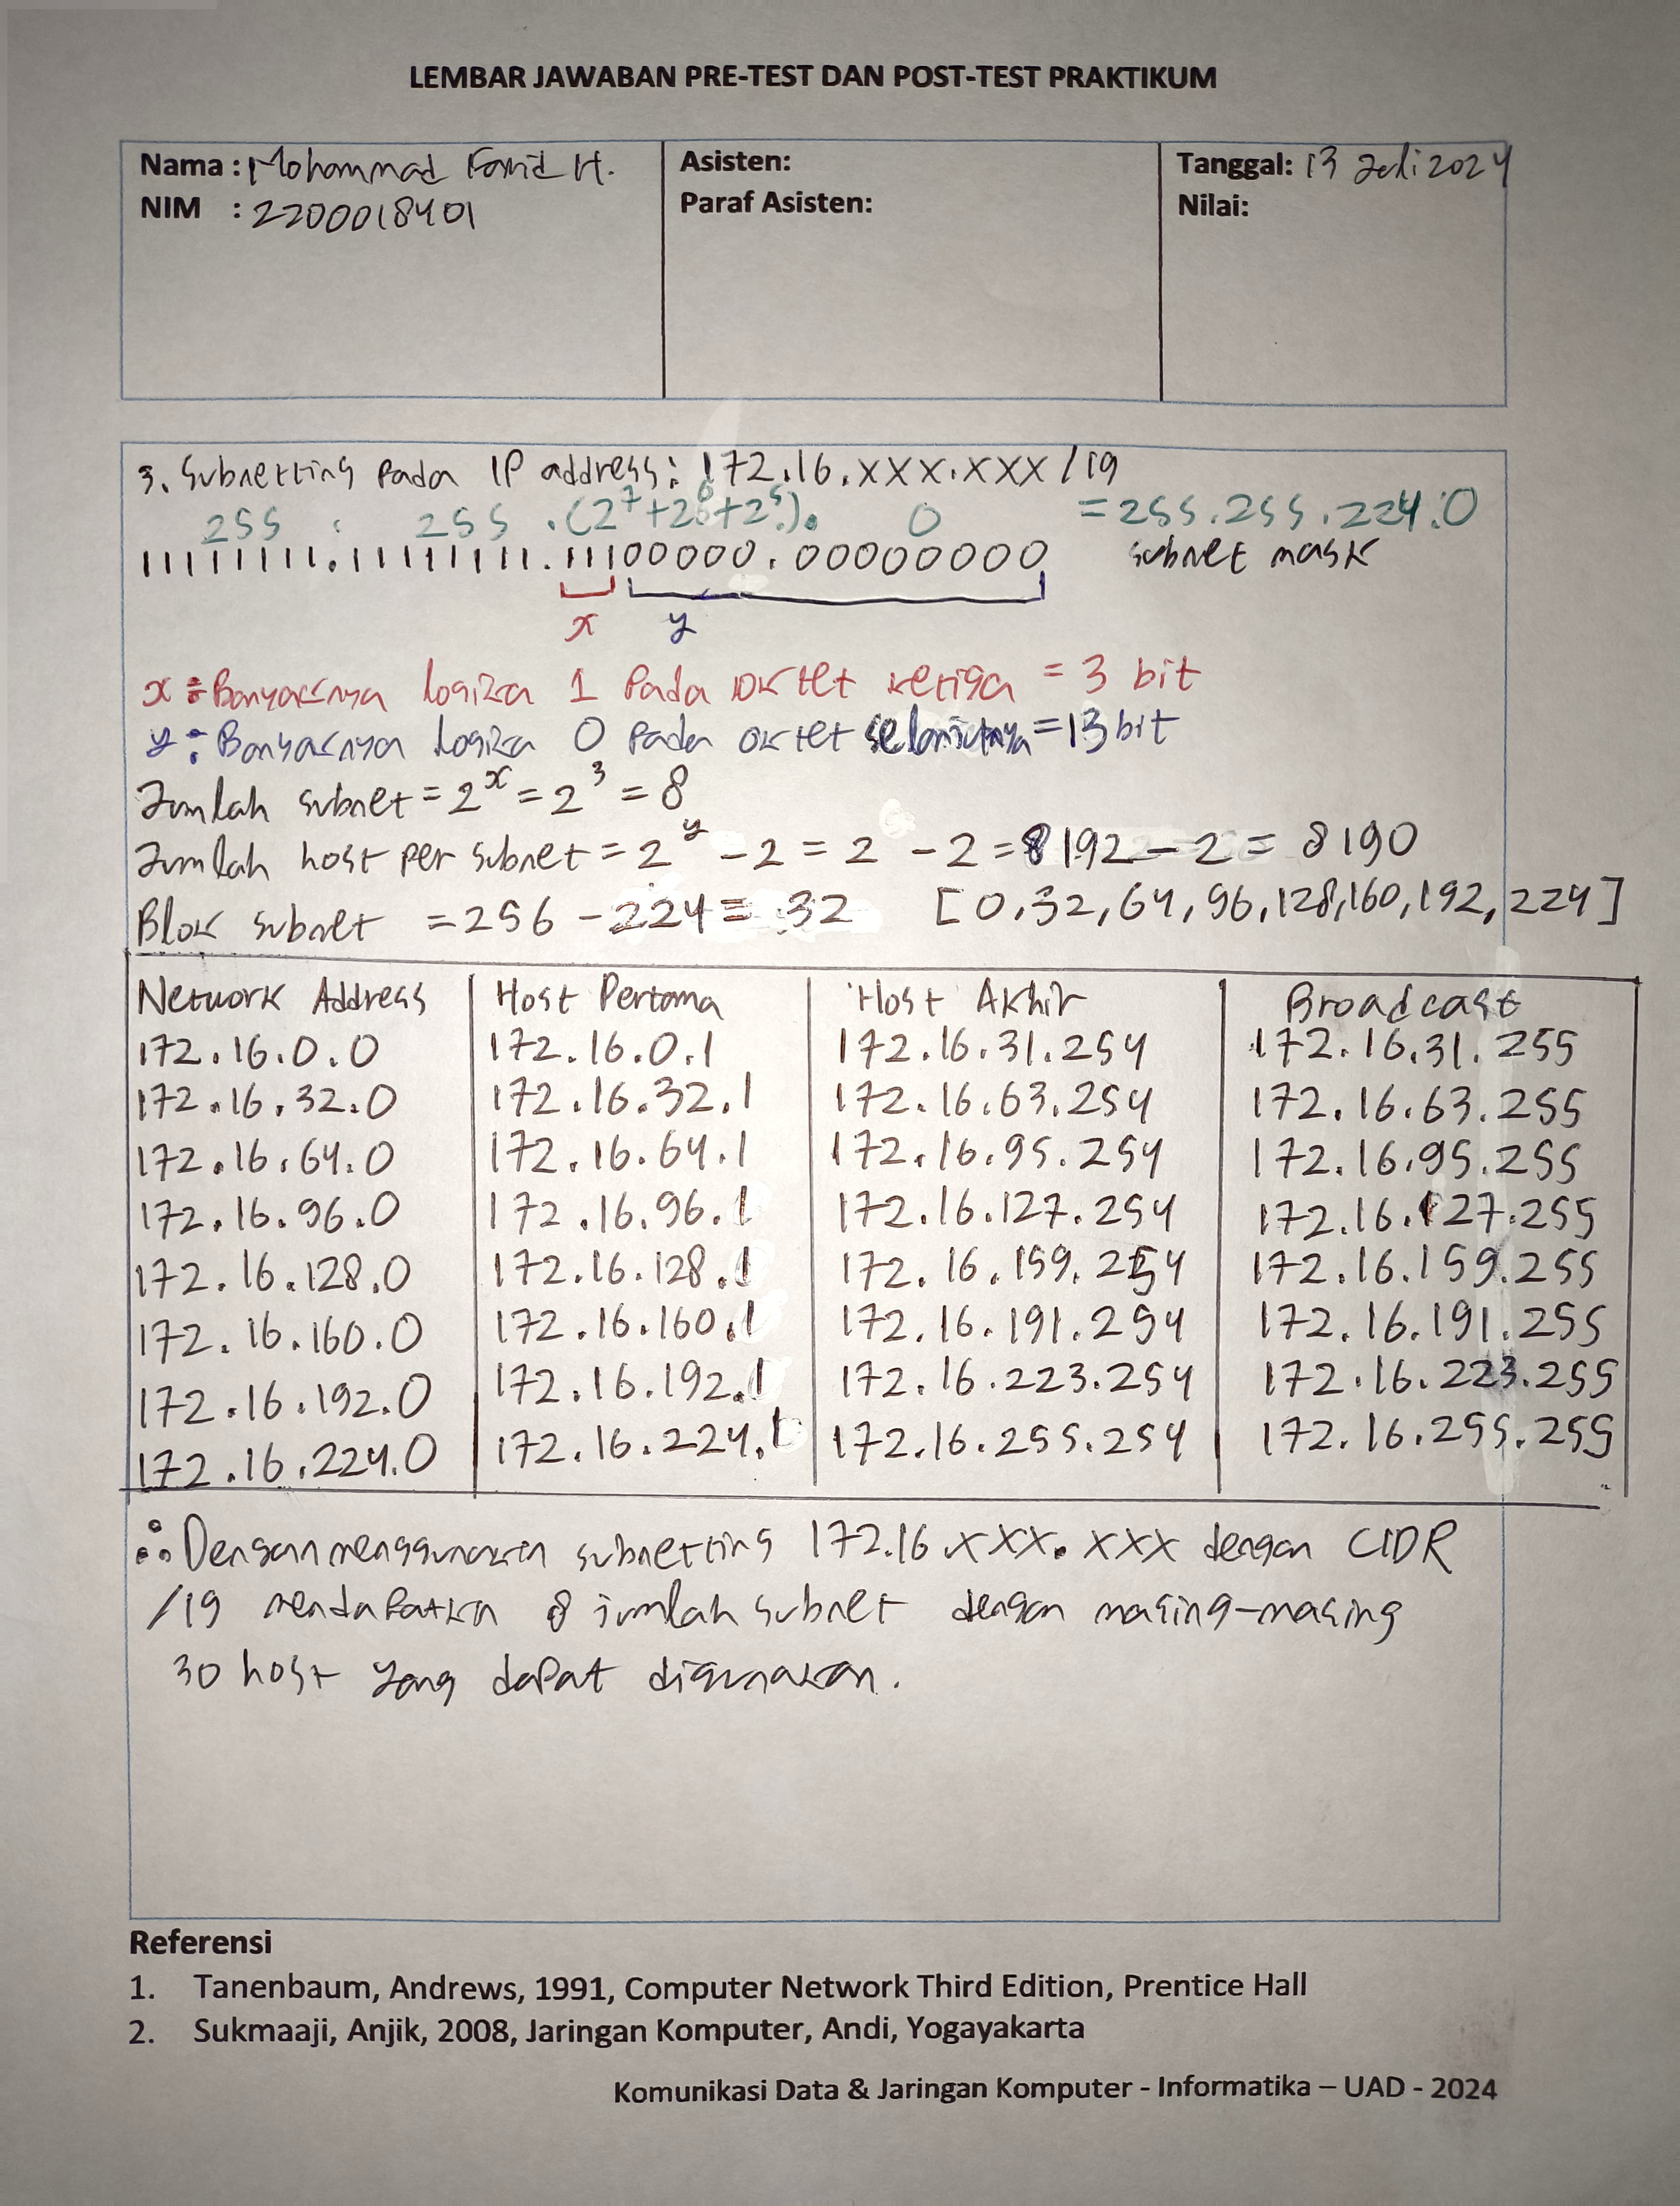 LEMBAR JAWABAN PRE-TEST DAN POST-TEST PRAKTIKUM
Nama : Mohammad Farid H.
NIM : 2200018401
Asisten:
Paraf Asisten:
Tanggal: 13 Juli 2024
Nilai:
3. Subnetting Pada IP address: 172.16.xxx.xxx /19
255 . 255 .(2⁷+2⁶+2⁵). 0 = 255.255.224.0
11111111.11111111.11100000.00000000 subnet mask
x y
x : Banyaknya logika 1 Pada oktet ketiga = 3 bit
y : Banyaknya logika 0 Pada oktet selanjutnya = 13 bit
Jumlah subnet = 2ˣ = 2³ = 8
Jumlah host per subnet = 2ʸ - 2 = 2 - 2 = 8192 - 2 = 8190
Blok subnet = 256 - 224 = 32 [0,32,64,96,128,160,192,224]
Network Address Host Pertama Host Akhir Broadcast
172.16.0.0 172.16.0.1 172.16.31.254 172.16.31.255
172.16.32.0 172.16.32.1 172.16.63.254 172.16.63.255
172.16.64.0 172.16.64.1 172.16.95.254 172.16.95.255
172.16.96.0 172.16.96.1 172.16.127.254 172.16.127.255
172.16.128.0 172.16.128.1 172.16.159.254 172.16.159.255
172.16.160.0 172.16.160.1 172.16.191.254 172.16.191.255
172.16.192.0 172.16.192.1 172.16.223.254 172.16.223.255
172.16.224.0 172.16.224.1 172.16.255.254 172.16.255.255
∴ Dengan menggunakan subnetting 172.16.xxx.xxx dengan CIDR
/19 mendapatkan 8 jumlah subnet dengan masing-masing
30 host yang dapat digunakan.
Referensi
1. Tanenbaum, Andrews, 1991, Computer Network Third Edition, Prentice Hall
2. Sukmaaji, Anjik, 2008, Jaringan Komputer, Andi, Yogayakarta
Komunikasi Data & Jaringan Komputer - Informatika – UAD - 2024